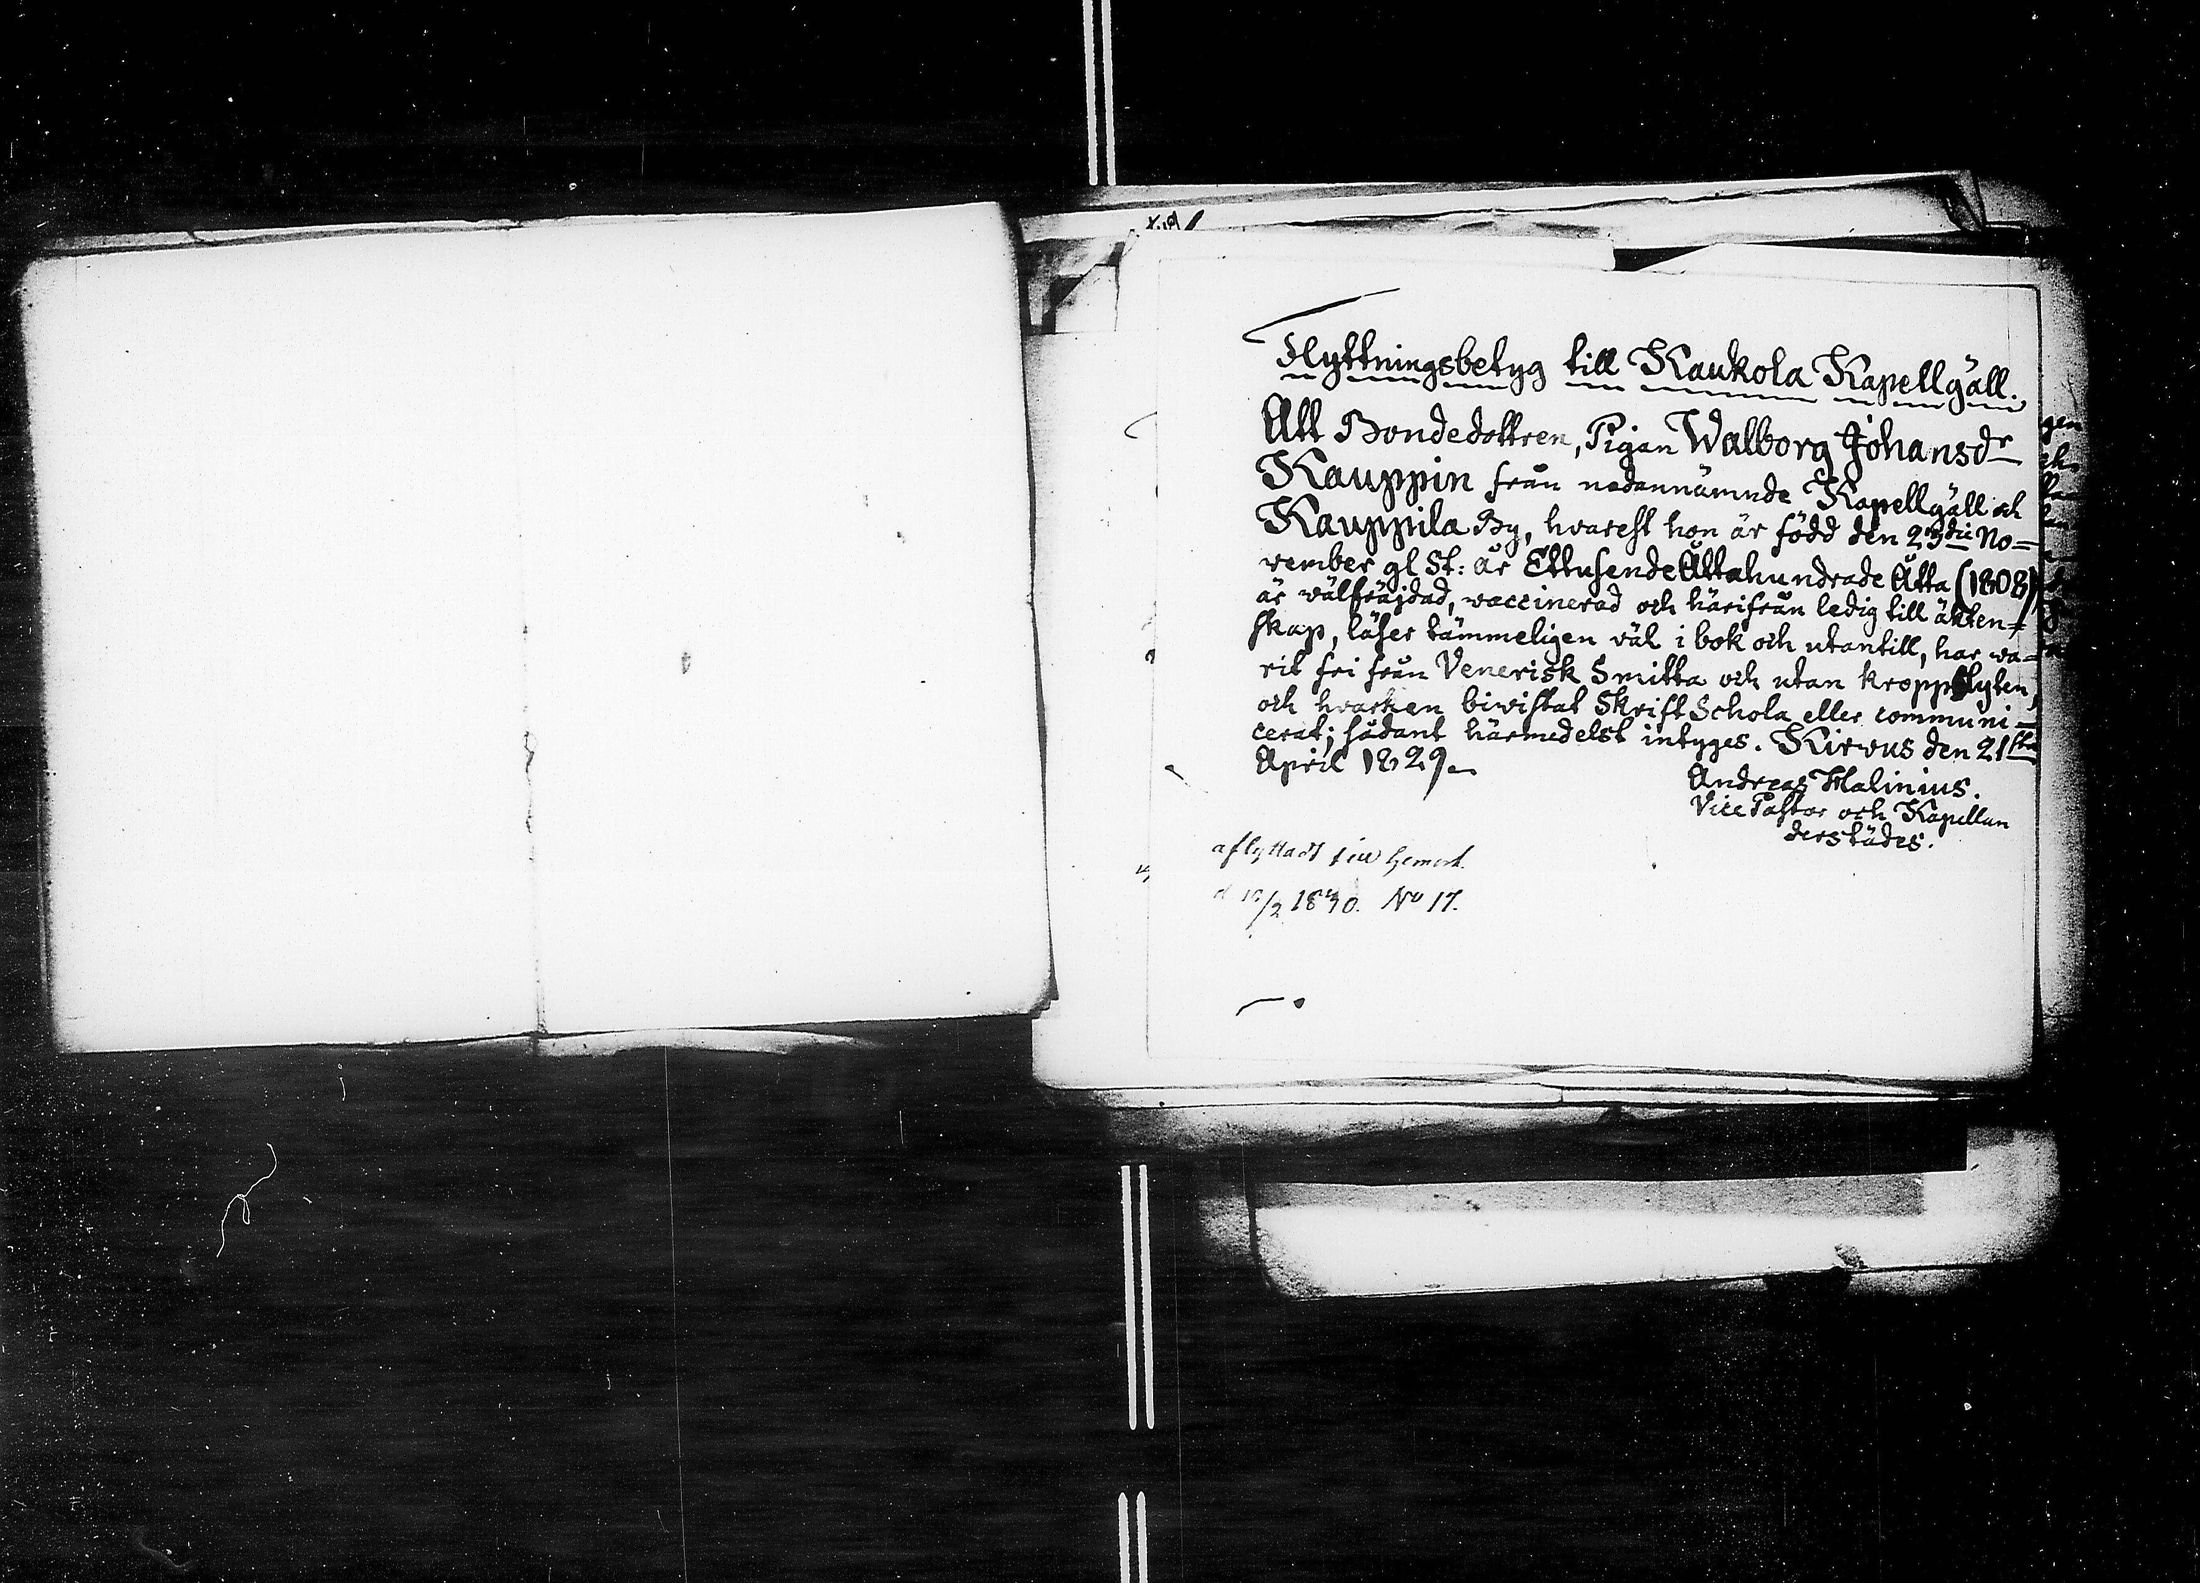 Flyttningsbetyg till Kaukola Kapellgäll.
Att Bondedottren, Pigan Walborg Johansdr
Kauppin från nedannämnde Kapellgäll och
Kauppila By, hvarest hon är född den 23die No=
vember gl St: år Ettusende Åttahundrade Åtta (1808)
är välfräjdad, vaccinerad och härifrån ledig till äkten=
skap, läser tämmeligen väl i bok och utantill, har va=
rit fri från Venerisk Smitta och utan kroppslyten,
och hvarken biwistat Skrift Schola eller communi=
cerat; sådant härmedelst intyges. Kirvus den 21sta
April 1829.
Andreas Malinius.
Vice Pastor och Kapellan
derstädes.
aflyttadt till hemort.
d /2 1830. No 17.